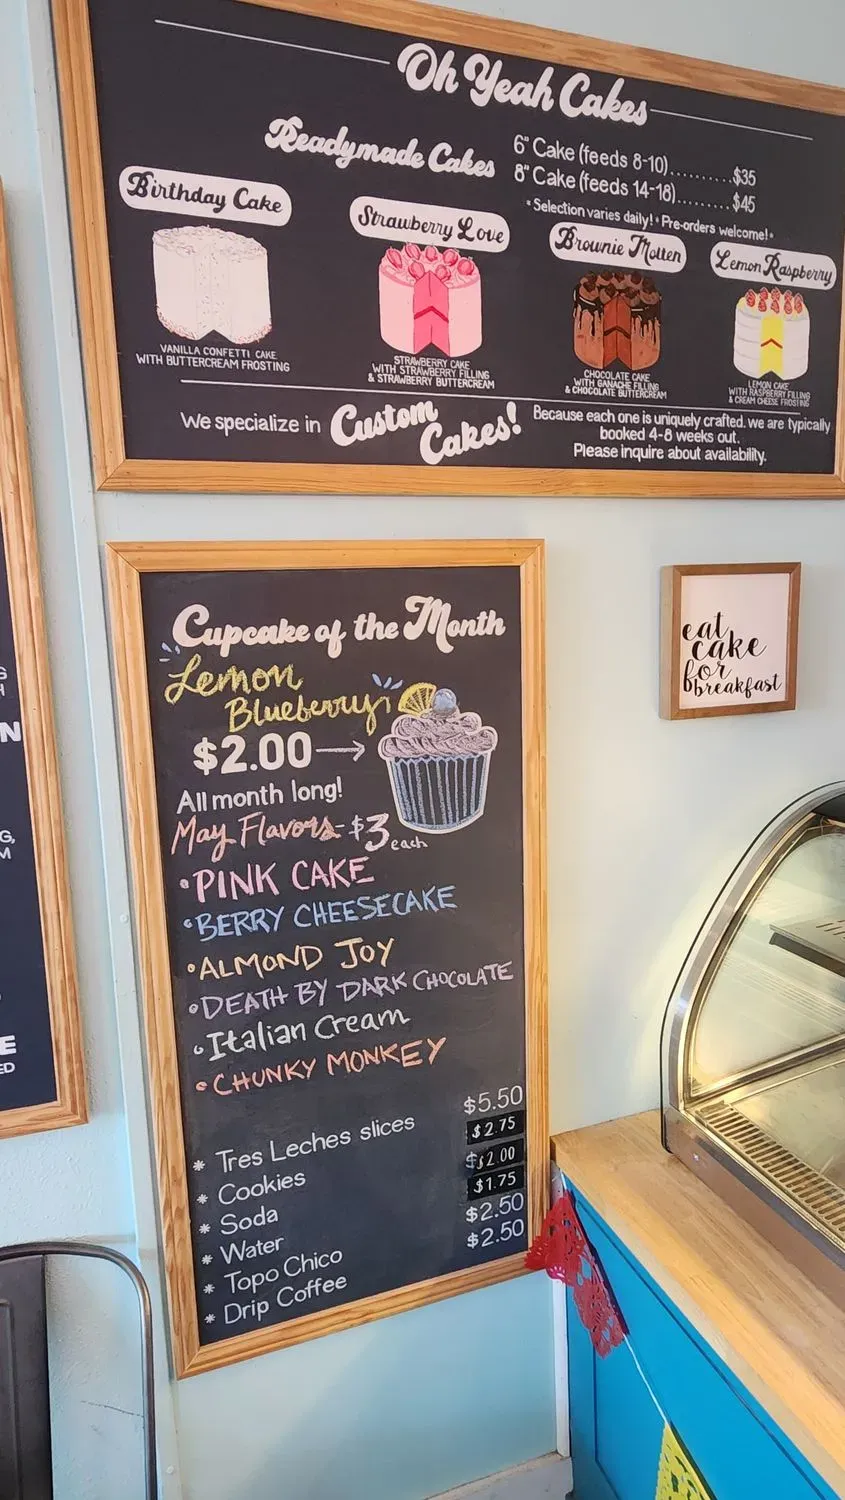 Oh Yeah Cakes
Readymade Cakes
6" Cake (feeds 8-10)..........$35
8" Cake (feeds 14-18).........$45
*Selection varies daily!* Pre-orders welcome!*
Birthday Cake
VANILLA CONFETTI CAKE
WITH BUTTERCREAM FROSTING
Strawberry Love
STRAWBERRY CAKE
WITH STRAWBERRY FILLING
& STRAWBERRY BUTTERCREAM
Brownie Molten
CHOCOLATE CAKE
WITH GANACHE FILLING
& CHOCOLATE BUTTERCREAM
Lemon Raspberry
LEMON CAKE
WITH RASPBERRY FILLING
& CREAM CHEESE FROSTING
We specialize in Custom Cakes!
Because each one is uniquely crafted, we are typically
booked 4-8 weeks out.
Please inquire about availability.
Cupcake of the Month
Lemon
Blueberry
$2.00
All month long!
May Flavors-$3 each
•PINK CAKE
•BERRY CHEESECAKE
•ALMOND JOY
•DEATH BY DARK CHOCOLATE
•Italian Cream
•CHUNKY MONKEY
* Tres Leches slices $5.50
* Cookies $2.75
* Soda $2.00
* Water $1.75
* Topo Chico $2.50
* Drip Coffee $2.50
eat
cake
for
breakfast